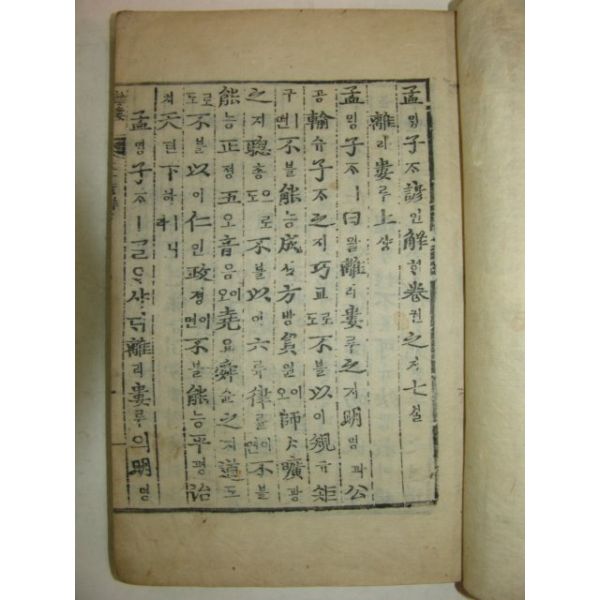 孟밍子ᄌᆞ諺언解ᄒᆡ卷권之지七칠
離리婁루上샹
孟밍子ᄌᆞㅣ曰왈離리婁루之지明명과公
공輸슈子ᄌᆞ之지巧교로도不블以이規규矩
구ㅣ면不블能능成셩方방員원이오師ᄉᆞ曠광
之지聰총으로도不블以이六륙律률이면不블
能능正졍五오音음이오堯요舜슌之지道도
로도不블以이仁인政졍이면不블能능平평治
티天텬下하ㅣ니라
孟밍子ᄌᆞㅣᄀᆞᆯᄋᆞ샤ᄃᆡ離리婁루의明명